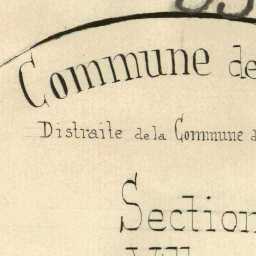 Commune de
Distraite de la Commune d
Section